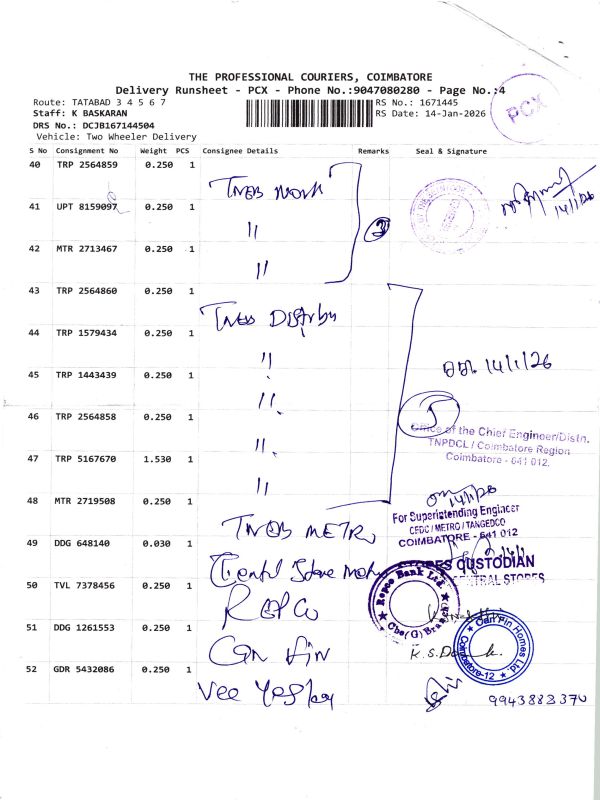 THE PROFESSIONAL COURIERS, COIMBATORE
Delivery Runsheet - PCX - Phone No.:9047080280 - Page No.:4
Route: TATABAD 3 4 5 6 7
RS No.: 1671445
Staff: K BASKARAN
RS Date: 14-Jan-2026
DRS No.: DCJB167144504
Vehicle: Two Wheeler Delivery
PCX
S No Consignment No Weight PCS Consignee Details Remarks Seal & Signature
40 TRP 2564859 0.250 1 TNEB
14/1/26
41 UPT 8159097 0.250 1 "
3
42 MTR 2713467 0.250 1 "
43 TRP 2564860 0.250 1 TNEB Distrbu
44 TRP 1579434 0.250 1 "
14/1/26
45 TRP 1443439 0.250 1 "
5
46 TRP 2564858 0.250 1 "
Office of the Chief Engineer/Distn.
TNPDCL / Coimbatore Region
Coimbatore - 641 012.
47 TRP 5167670 1.530 1 "
48 MTR 2719508 0.250 1 TNEB METRO
14/1/26
For Superintending Engineer
CEDC / METRO / TANGEDCO
COIMBATORE - 641 012
49 DDG 648140 0.030 1 Central Store
CUSTODIAN
CENTRAL STORES
50 TVL 7378456 0.250 1 REPCO
Repco Bank Ltd.
Cbe(G) Branch
51 DDG 1261553 0.250 1 Can Fin
Can Fin Homes Ltd.
Coimbatore-12
K.S.
52 GDR 5432086 0.250 1 Vee
9943883370